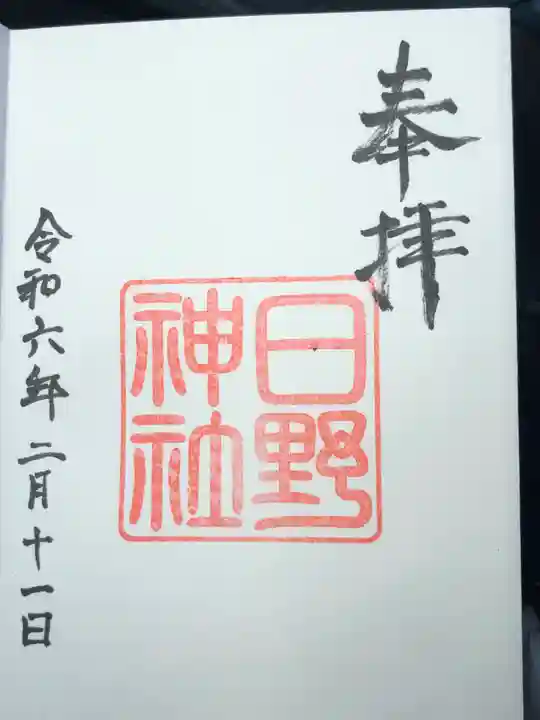 奉拝
日野
神社
令和六年二月十一日